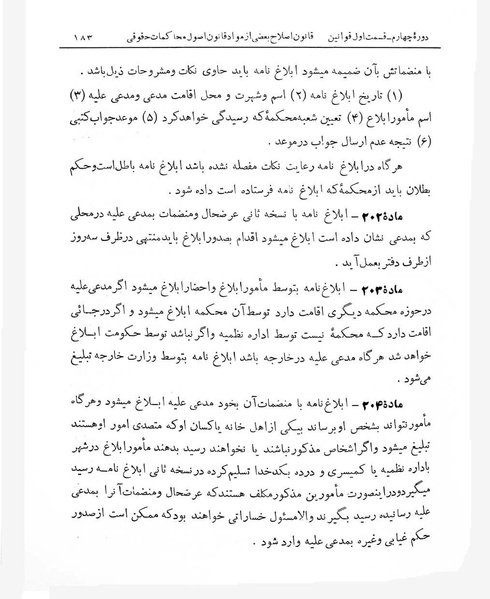 دورهٔ چهارم – قسمت اول قوانین    قانون اصلاح بعضی از مواد قانون اصول محاکمات حقوقی    ۱۸۳
با منضماتش بآن ضمیمه میشود ابلاغ نامه باید حاوی نکات ومشروحات ذیل باشد .
(۱) تاریخ ابلاغ نامه (۲) اسم وشهرت و محل اقامت مدعی ومدعی علیه (۳)
اسم مأمور ابلاغ (۴) تعیین شعبه محکمه که رسیدگی خواهد کرد (۵) موعد جواب کتبی
(۶) نتیجه عدم ارسال جواب در موعد .
هر گاه در ابلاغ نامه رعایت نکات مفصله نشده باشد ابلاغ نامه باطل است وحکم
بطلان باید از محکمهٔ که ابلاغ نامه فرستاده است داده شود .
مادهٔ ۲۰۲ – ابلاغ نامه با نسخه ثانی عرضحال ومنضمات بمدعی علیه در محلی
که بمدعی نشان داده است ابلاغ میشود اقدام بصدور ابلاغ باید منتهی در ظرف سه روز
از طرف دفتر بعمل آید .
مادهٔ ۲۰۳ – ابلاغ نامه بتوسط مأمور ابلاغ واحضار ابلاغ میشود اگر مدعی علیه
در حوزه محکمه دیگری اقامت دارد توسط آن محکمه ابلاغ میشود و اگر در جائی
اقامت دارد که محکمهٔ نیست توسط اداره نظمیه واگر نباشد توسط حکومت ابلاغ
خواهد شد هر گاه مدعی علیه در خارجه باشد ابلاغ نامه بتوسط وزارت خارجه تبلیغ
می‌شود .
مادهٔ ۲۰۴ – ابلاغ نامه با منضمات آن بخود مدعی علیه ابلاغ میشود وهر گاه
مأمور نتواند بشخص او برساند بیکی از اهل خانه یا کسان او که متصدی امور او هستند
تبلیغ میشود واگر اشخاص مذکور نباشند یا نخواهند رسید بدهند مأمور ابلاغ در شهر
باداره نظمیه یا کمیسری و در ده بکدخدا تسلیم کرده در نسخه ثانی ابلاغ نامه رسید
میگیرد و در اینصورت مأمورین مذکور مکلف هستند که عرضحال ومنضمات آنرا بمدعی
علیه رسانیده رسید بگیرند والا مسئول خساراتی خواهند بود که ممکن است از صدور
حکم غیابی وغیره بمدعی علیه وارد شود .